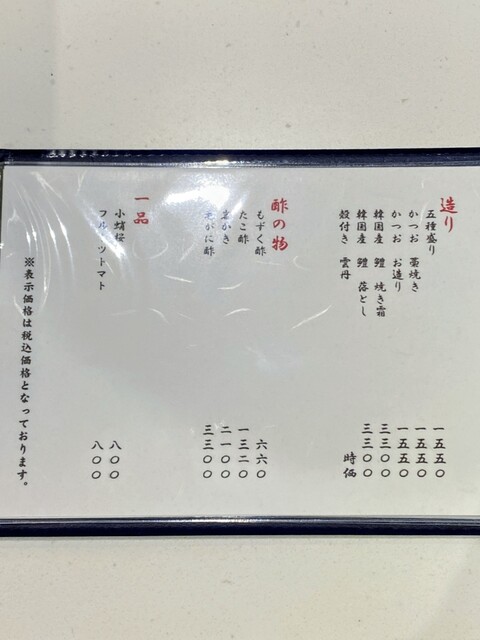 造り
五種盛り 一五五〇
かつお 藁焼き 一五五〇
かつお お造り 一五五〇
韓国産 鱧 焼き霜 三三〇〇
韓国産 鱧 落とし 三三〇〇
殻付き 雲丹 時価
酢の物
もずく酢 六六〇
たこ酢 一三二〇
かき 二一〇〇
がに酢 三三〇〇
一品
小蛸桜 八〇〇
フルーツトマト 八〇〇
※表示価格は税込価格となっております。